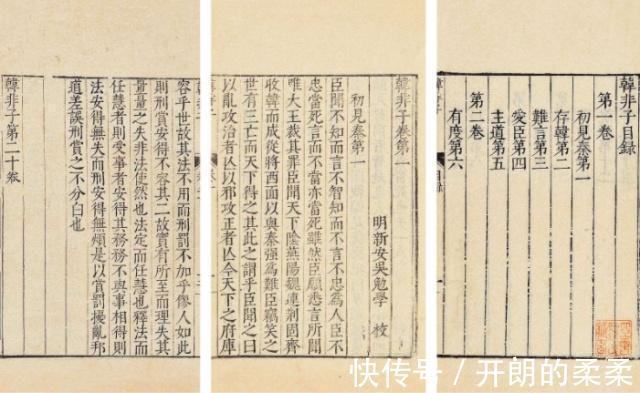 韓非子目録
第一卷
初見秦第一
存韓第二
難言第三
愛臣第四
主道第五
第二卷
有度第六
韓非子卷第一
明新安吳勉學 校
初見秦第一
臣聞不知而言不智知而不言不忠為人臣不
忠當死言而不當亦當死雖然臣願悉言所聞
唯大王裁其罪臣聞天下陰燕陽魏連荆固齊
收韓而成從將西面以與秦强為難臣竊笑之
世有三亡而天下得之其此之謂乎臣聞之曰
以亂攻治者亾以邪攻正者亾今天下之府庫
容乎世故其法不用而刑罰不加乎僇人如此
則刑賞安得不容其二故實有所至而理失其
量量之失非法使然也法定而任慧也釋法而
任慧者則受事者安得其務務不與事相得則
法安得無失而刑安得無煩是以賞罰擾亂邦
道差誤刑賞之不分白也
韓非子第二十卷
快传号 / 开朗的柔柔